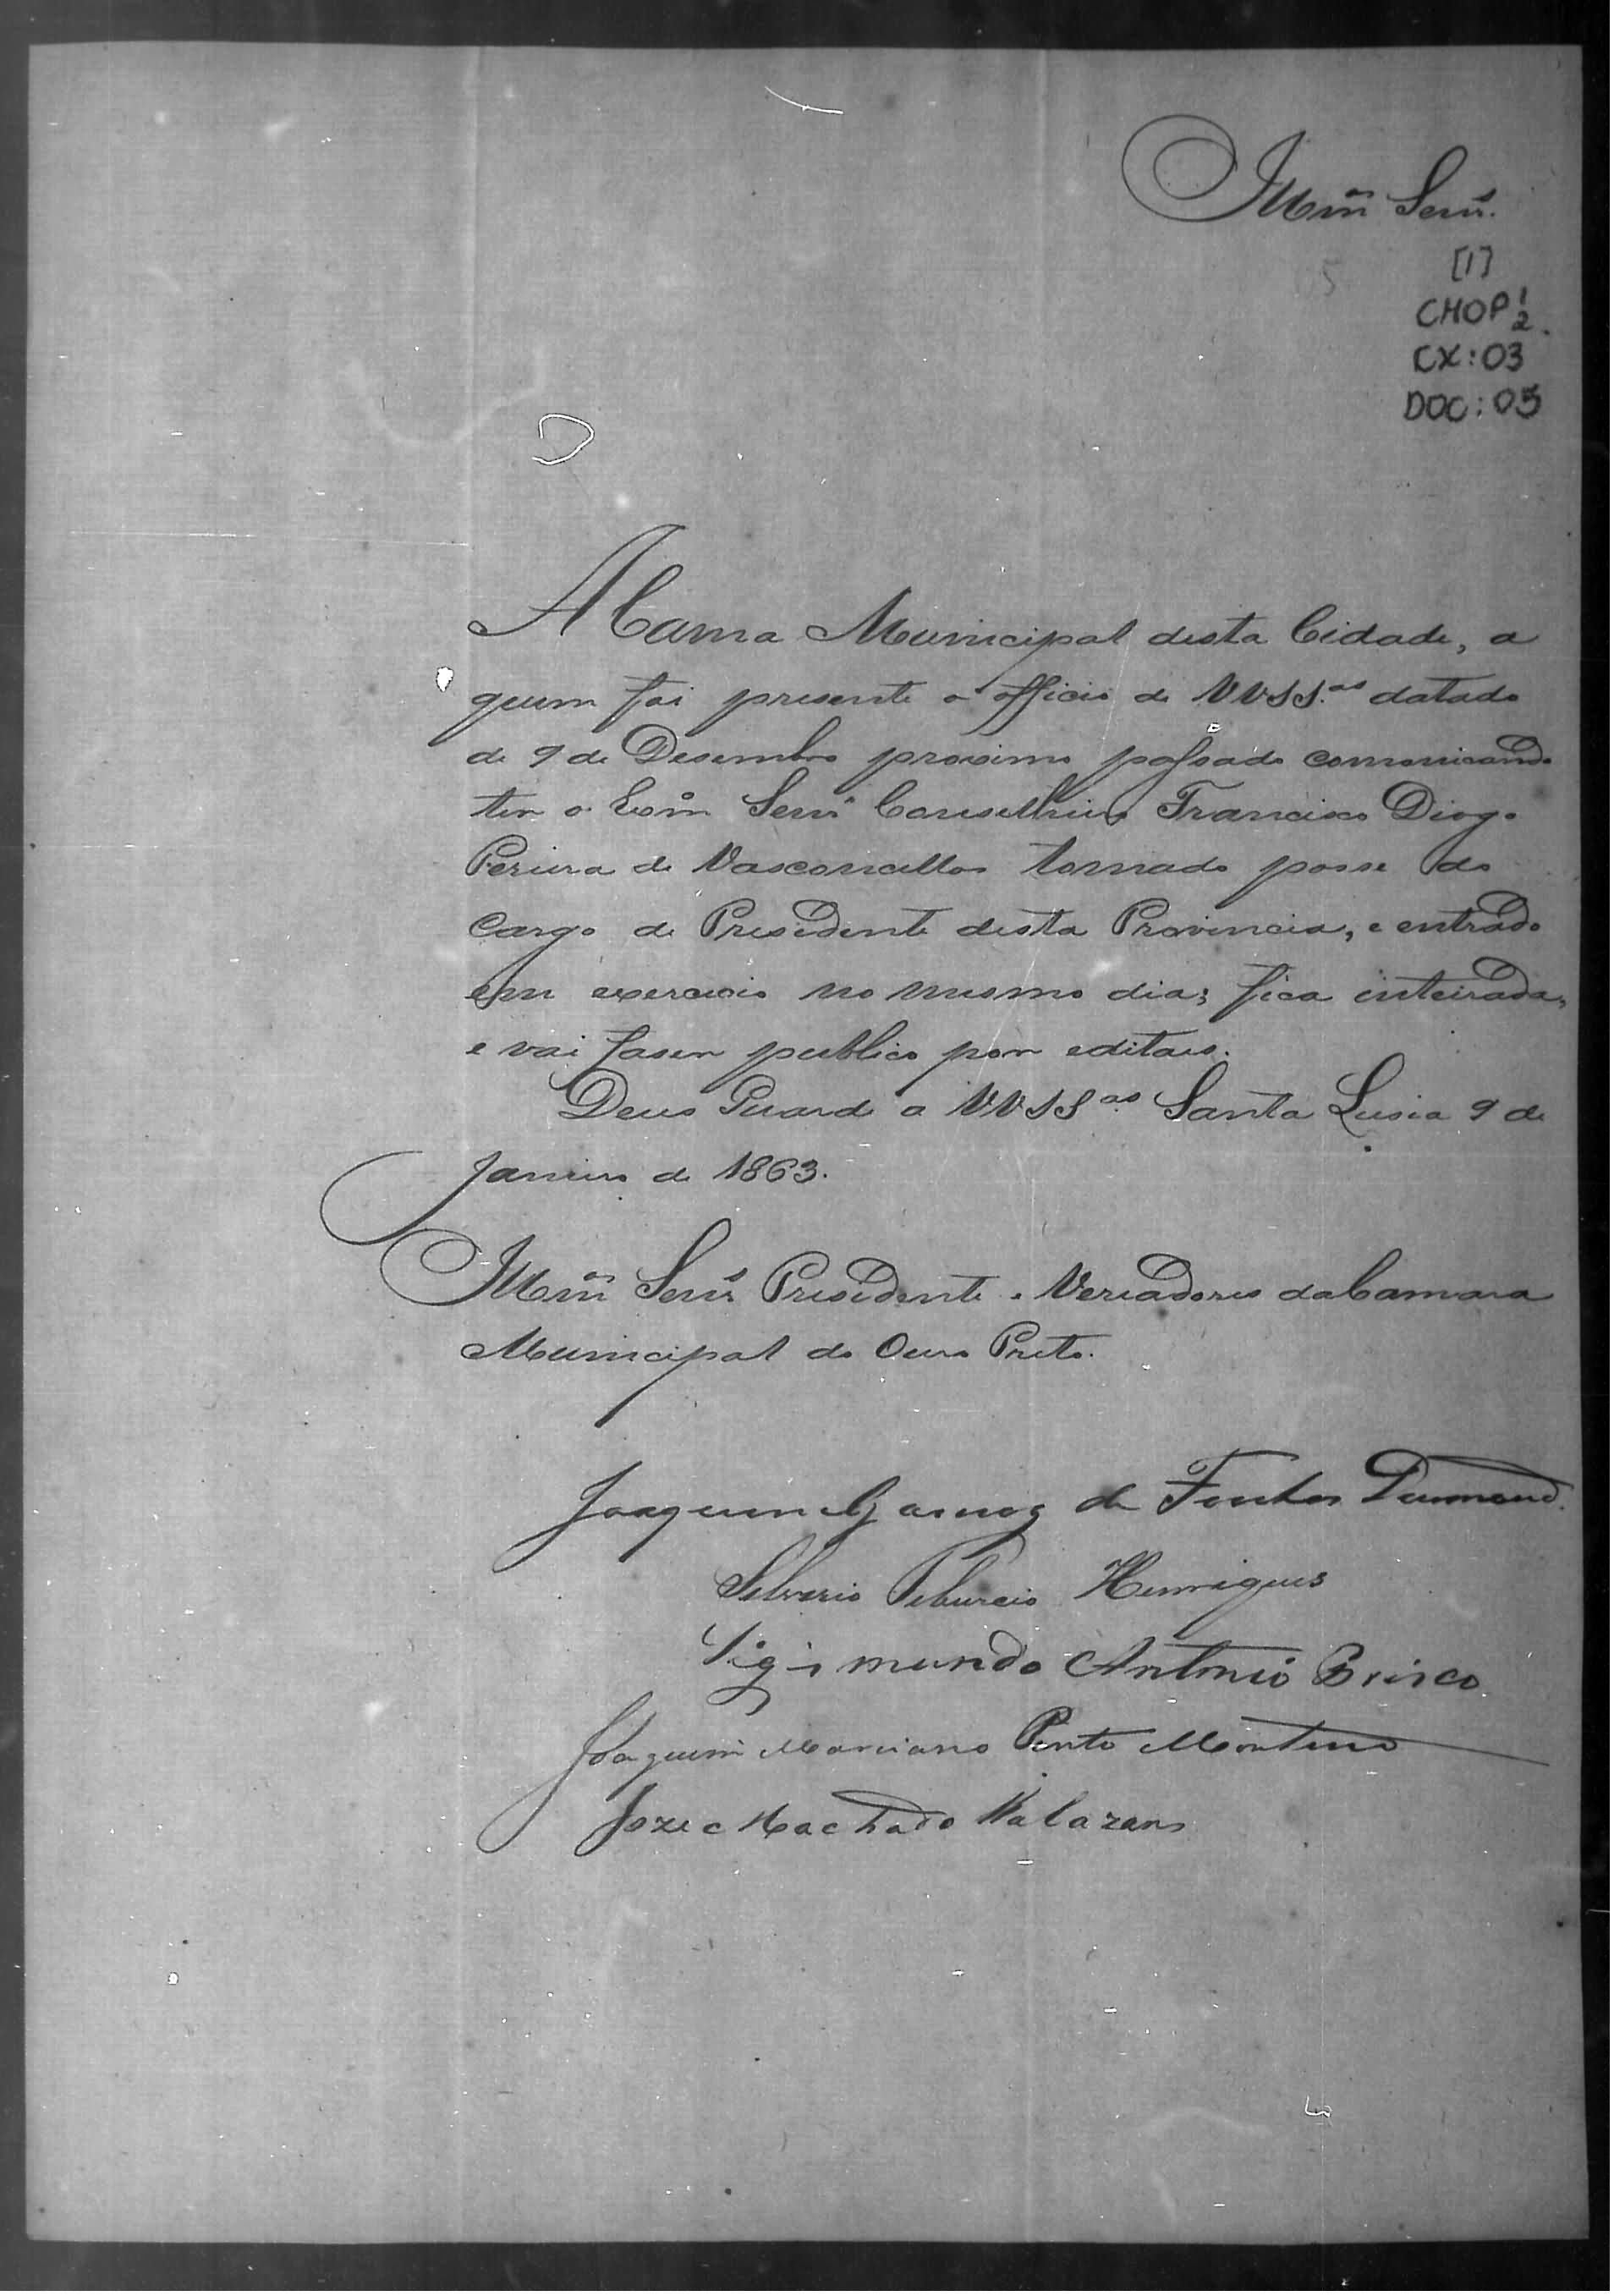 Illm.os Senr.s
[1]
CHOP 1/2
CX:03
DOC:05
A Camra Municipal desta Cidade, a
quem foi presente o officio de VVSS.as datado
de 9 de Desembro proximo passado comonicando
ter o Exm.o Senr. Conselheiro Francisco Diogo
Pereira de Vasconcellos tomado posse do
cargo de Presidente desta Provincia, e entrado
em exercicio no mesmo dia; fica inteirada,
e vai faser publico por editaes.
Deus Guarde a VVSS.as Santa Lusia 9 de
Janeiro de 1863.
Illm.os Senr.s Presidente e Vereadores da Camara
Municipal do Ouro Preto.
Joaquim de Fontes Dumond.
Silverio Teburcio Henriques
Sigismundo Antonio Brisco
Joaquim Marciano Pinto Monteiro
Joze Machado Kalazans